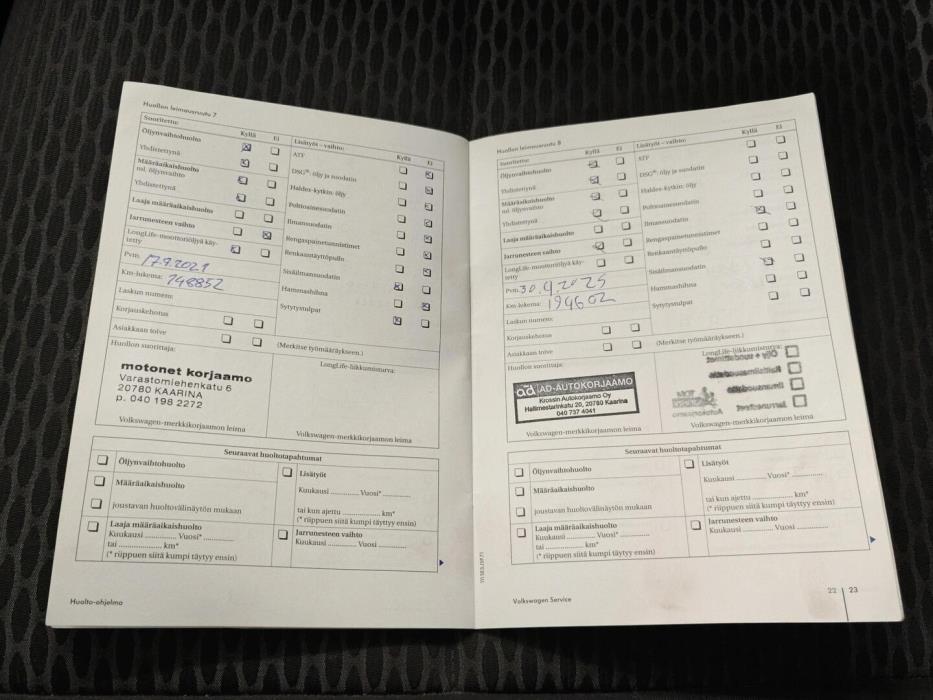 Huollon leimausruutu 7
Suoritettu: Kyllä Ei
Öljynvaihtohuolto
Yhdistettynä
Määräaikaishuolto
ml. öljynvaihto
Yhdistettynä
Laaja määräaikaishuolto
Jarrunesteen vaihto
LongLife-moottoriöljyä käy-
tetty
Pvm: 17.9.2021
Km-lukema: 148852
Laskun numero:
Korjauskehotus
Asiakkaan toive
Lisätyöt – vaihto: Kyllä Ei
ATF
DSG®: öljy ja suodatin
Haldex-kytkin: öljy
Polttoainesuodatin
Ilmansuodatin
Rengaspainetunnistimet
Renkaantäyttöpullo
Sisäilmansuodatin
Hammashihna
Sytytystulpat
(Merkitse työmääräykseen.)
Huollon suorittaja:
motonet korjaamo
Varastomiehenkatu 6
20780 KAARINA
p. 040 198 2272
Volkswagen-merkkikorjaamon leima
LongLife-liikkumisturva:
Volkswagen-merkkikorjaamon leima
Seuraavat huoltotapahtumat
Öljynvaihtohuolto
Määräaikaishuolto
joustavan huoltovälinäytön mukaan
Laaja määräaikaishuolto
Kuukausi .............. Vuosi* ..............
tai .................... km*
(* riippuen siitä kumpi täytyy ensin)
Lisätyöt
Kuukausi .............. Vuosi* ..............
tai kun ajettu .................... km*
(* riippuen siitä kumpi täyttyy ensin)
Jarrunesteen vaihto
Kuukausi .............. Vuosi ..............
Huolto-ohjelma
Huollon leimausruutu 8
Suoritettu: Kyllä Ei
Öljynvaihtohuolto
Yhdistettynä
Määräaikaishuolto
ml. öljynvaihto
Yhdistettynä
Laaja määräaikaishuolto
Jarrunesteen vaihto
LongLife-moottoriöljyä käy-
tetty
Pvm: 30.9.2025
Km-lukema: 194602
Laskun numero:
Korjauskehotus
Asiakkaan toive
Lisätyöt – vaihto: Kyllä Ei
ATF
DSG®: öljy ja suodatin
Haldex-kytkin: öljy
Polttoainesuodatin
Ilmansuodatin
Rengaspainetunnistimet
Renkaantäyttöpullo
Sisäilmansuodatin
Hammashihna
Sytytystulpat
(Merkitse työmääräykseen.)
Huollon suorittaja:
ad AD-AUTOKORJAAMO
Krossin Autokorjaamo Oy
Hallimestarinkatu 20, 20780 Kaarina
040 737 4041
Volkswagen-merkkikorjaamon leima
LongLife-liikkumisturva:
Volkswagen-merkkikorjaamon leima
Seuraavat huoltotapahtumat
Öljynvaihtohuolto
Määräaikaishuolto
joustavan huoltovälinäytön mukaan
Laaja määräaikaishuolto
Kuukausi .............. Vuosi* ..............
tai .................... km*
(* riippuen siitä kumpi täyttyy ensin)
Lisätyöt
Kuukausi .............. Vuosi* ..............
tai kun ajettu .................... km*
(* riippuen siitä kumpi täyttyy ensin)
Jarrunesteen vaihto
Kuukausi .............. Vuosi ..............
Volkswagen Service
22 23